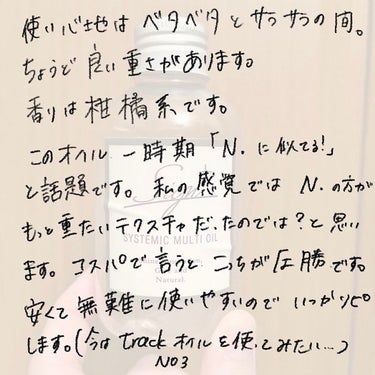 使い心地は ベタベタ と サラサラの 間。
ちょうど 良い 重さが あります。
香りは 柑橘系 です。
このオイル 一時期「N. に 似てる!」
と話題です。 私の 感覚では N. の方が
もっと 重たい テクスチャ だったのでは? と 思い
SYSTEMIC MULTI OIL
ます。 コスパで 言うと こっちが 圧勝 です。
Natural.
安くて 無難に 使いやすいので いつかリピ
します。(今は track オイルを 使ってみたい…)
NO3